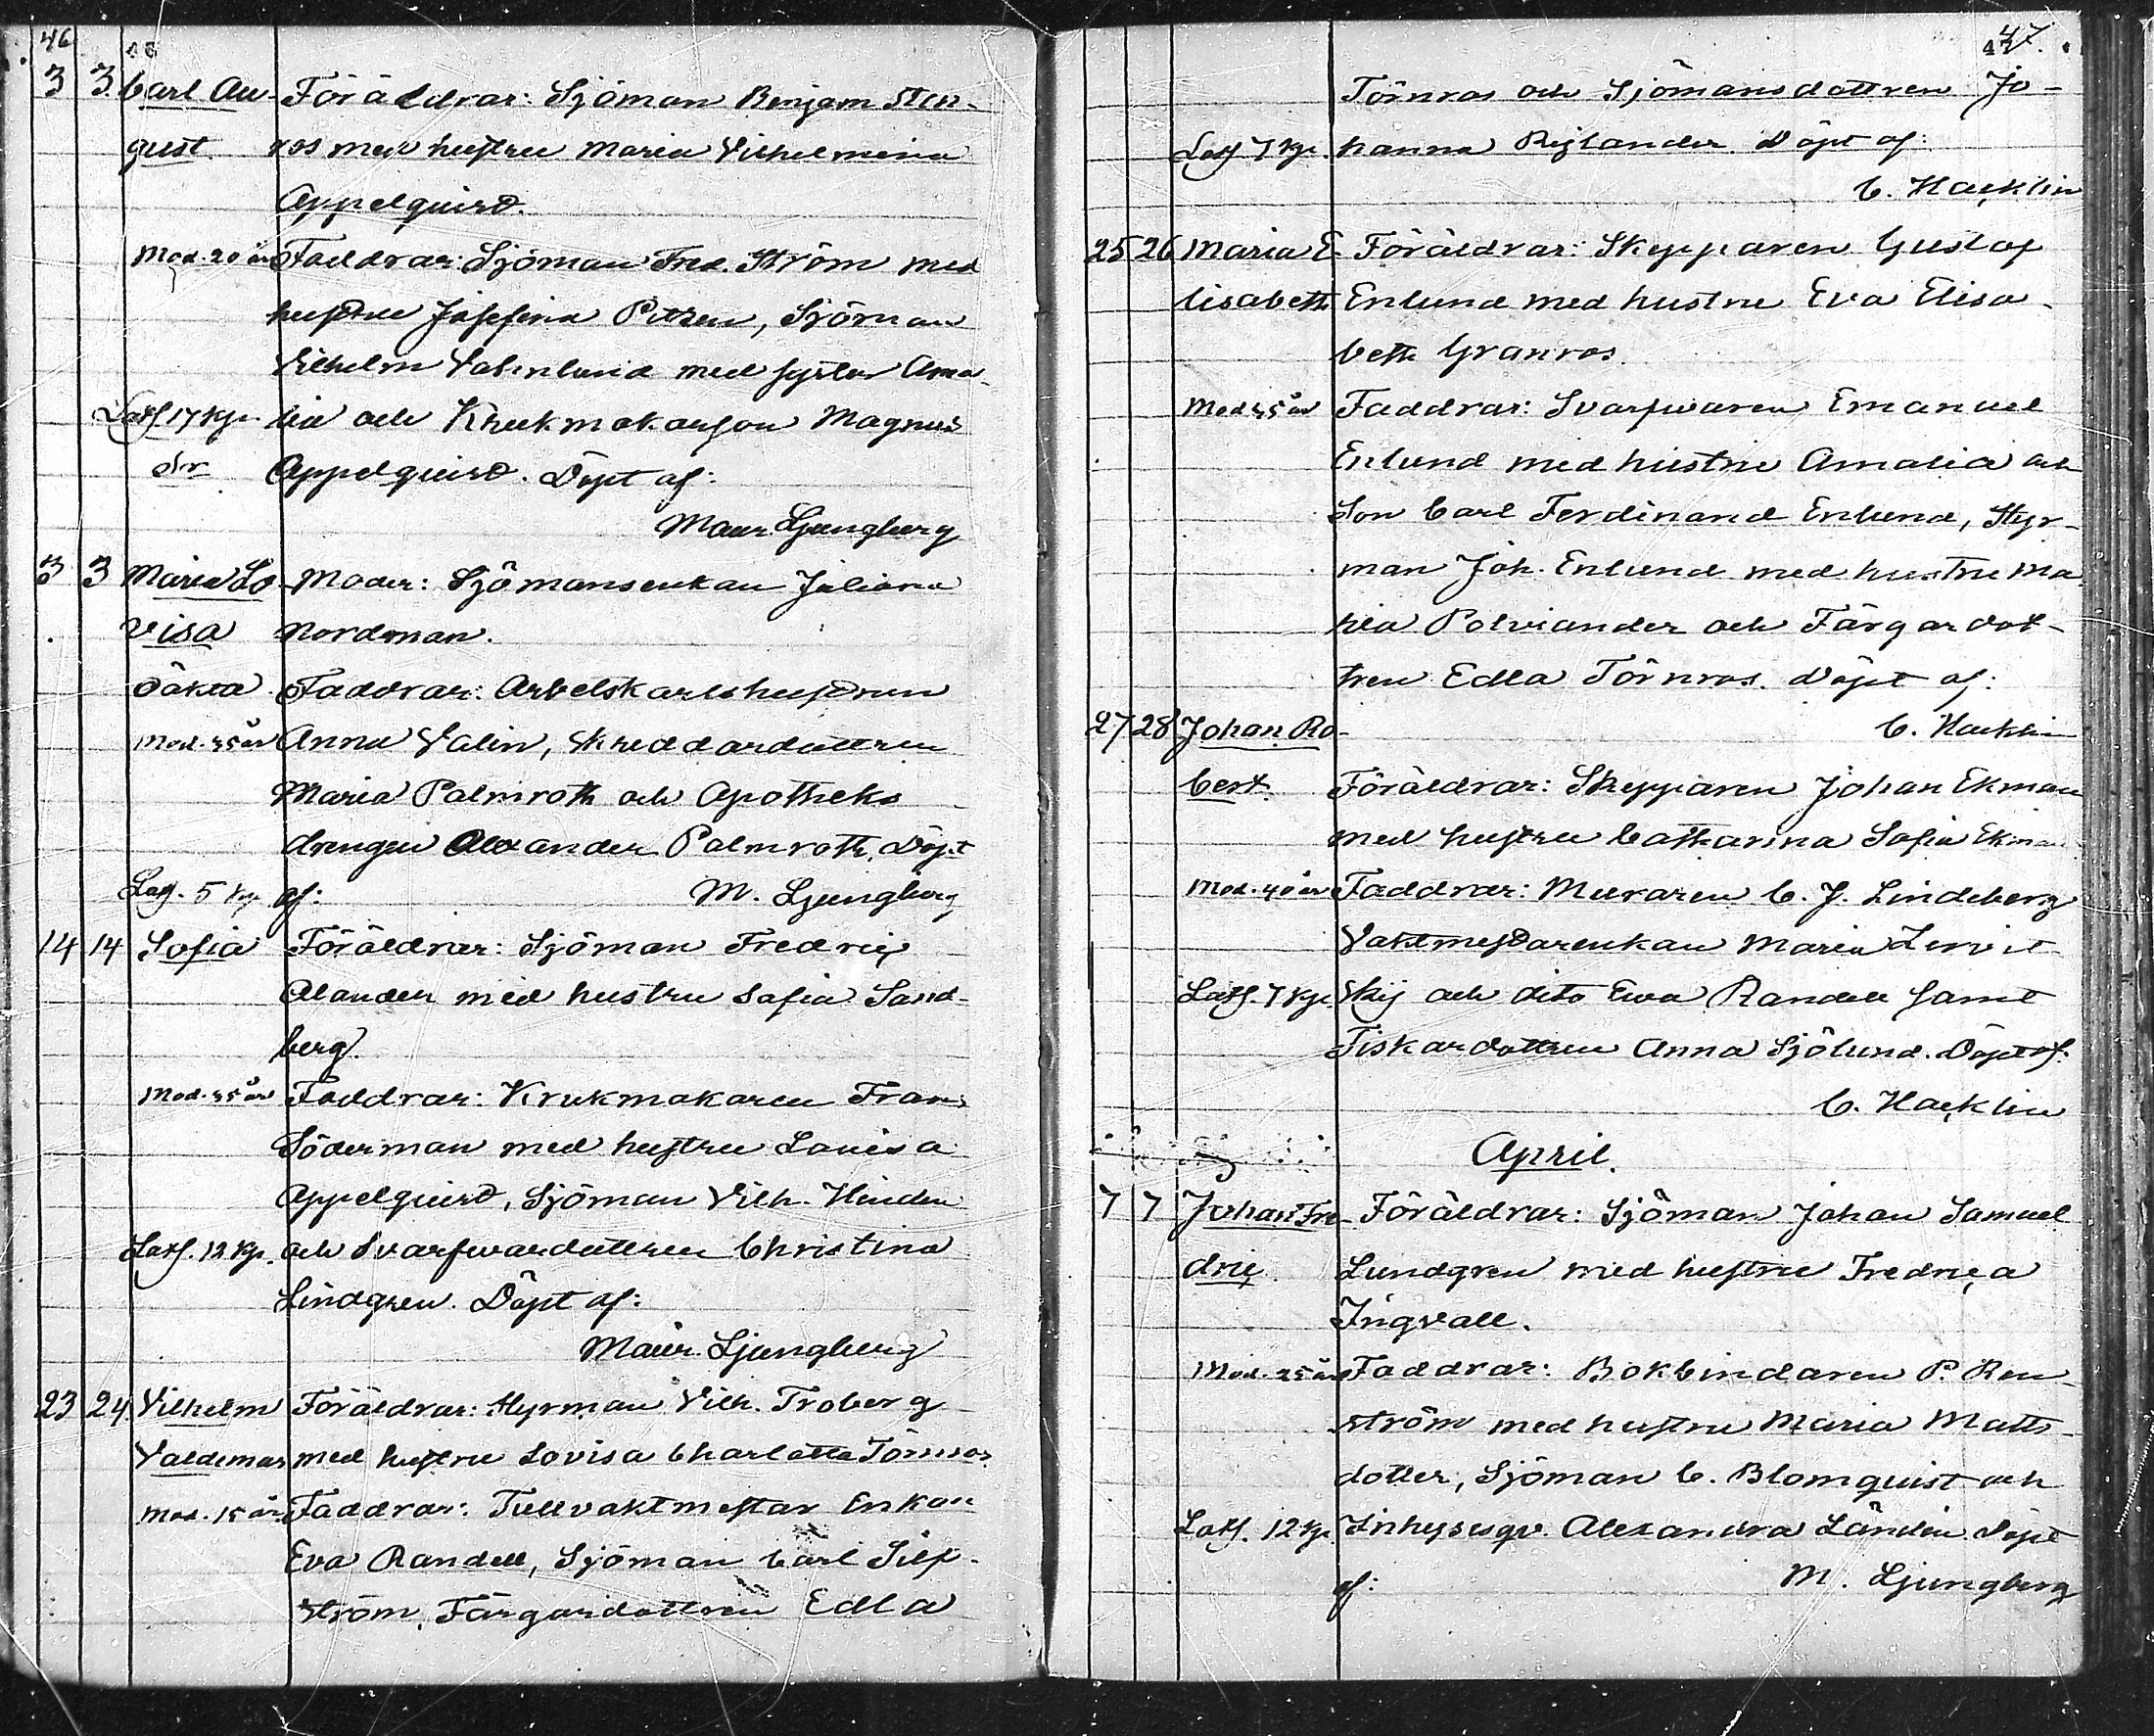 46
3 3 Carl Au- Föräldrar: Sjöman Benjam Sten-
gust. ros med hustru Maria Vilhelmina
Appelquist.
Mod. 20 år Faddrar: Sjöman Fred. Ström med
hustru Josefina Pitzen, Sjöman
Vilhelm Valenlund med syster Ama-
Latf 17 kp. lia och Krukmakarson Magnus
Sr Appelquist. Döpt af:
Maur. Ljungberg
3 3 Maria Lo- Moder: Sjömansenkan Juliana
visa Nordman.
Oäkta Faddrar: Arbetskarlshustrun
Mod. 35 år Anna Valin, Skreddardottren
Maria Palmroth och Apotheks
drengen Alexander Palmroth. Döpt
Lag. 5 kp af: M. Ljungberg
14 14 Sofia Föräldrar: Sjöman Fredric
Alander med hustru Sofia Sand-
berg.
Mod. 35 år Faddrar: Krukmakaren Frans
Söderman med hustru Lovisa
Appelquist, Sjöman Vilh. Hinden
Latf. 12 kp. och Svarfvardottren Christina
Lindgren. Döpt af:
Maur. Ljungberg
23 24 Vilhelm Föräldrar: Styrman Vilh. Troberg
Valdemar med hustru Lovisa Charlotta Törnros.
Mod. 15 år Faddrar: Tullvaktmestar Enkan
Eva Randell, Sjöman Carl Silf-
ström, Färgardottren Edla
47.
Törnros och Sjömansdottren Jo-
Latf 7 kp. hanna Rejlander. Döpt af:
C. Hacklin
25 26 Maria E- Föräldrar: Skepparen Gustaf
lisabeth Enlund med hustru Eva Elisa-
beth Granros.
Mod 35 år Faddrar: Svarfvaren Emanuel
Enlund med hustru Amalia och
Son Carl Ferdinand Enlund, Styr-
man Joh. Enlund med hustru Ma
hia Polviander och Färgardot-
tren Edla Törnros. Döpt af:
27 28 Johan Ro- C. Hacklin
bert. Föräldrar: Skepparen Johan Ekman
med hustru Catharina Sofia Ekman
Mod. 40 år Faddrar: Muraren C. J. Lindeberg
Vaktmestarenkan Maria Levit-
Latf. 7 kp. skij och dito Eva Randell samt
Fiskardottren Anna Sjölund. Döpt af.
C. Hacklin
April.
7 7 Johan Fre- Föräldrar: Sjöman Johan Samuel
dric Lundgren med hustru Fredrica
Ingvall.
Mod. 25 år Faddrar: Bokbindaren P. Ren-
ström med hustru Maria Matts-
dotter, Sjöman C. Blomquist och
Latf. 12 kp. Inhysesqv. Alexandra Ländin. Döpt
af: M. Ljungberg